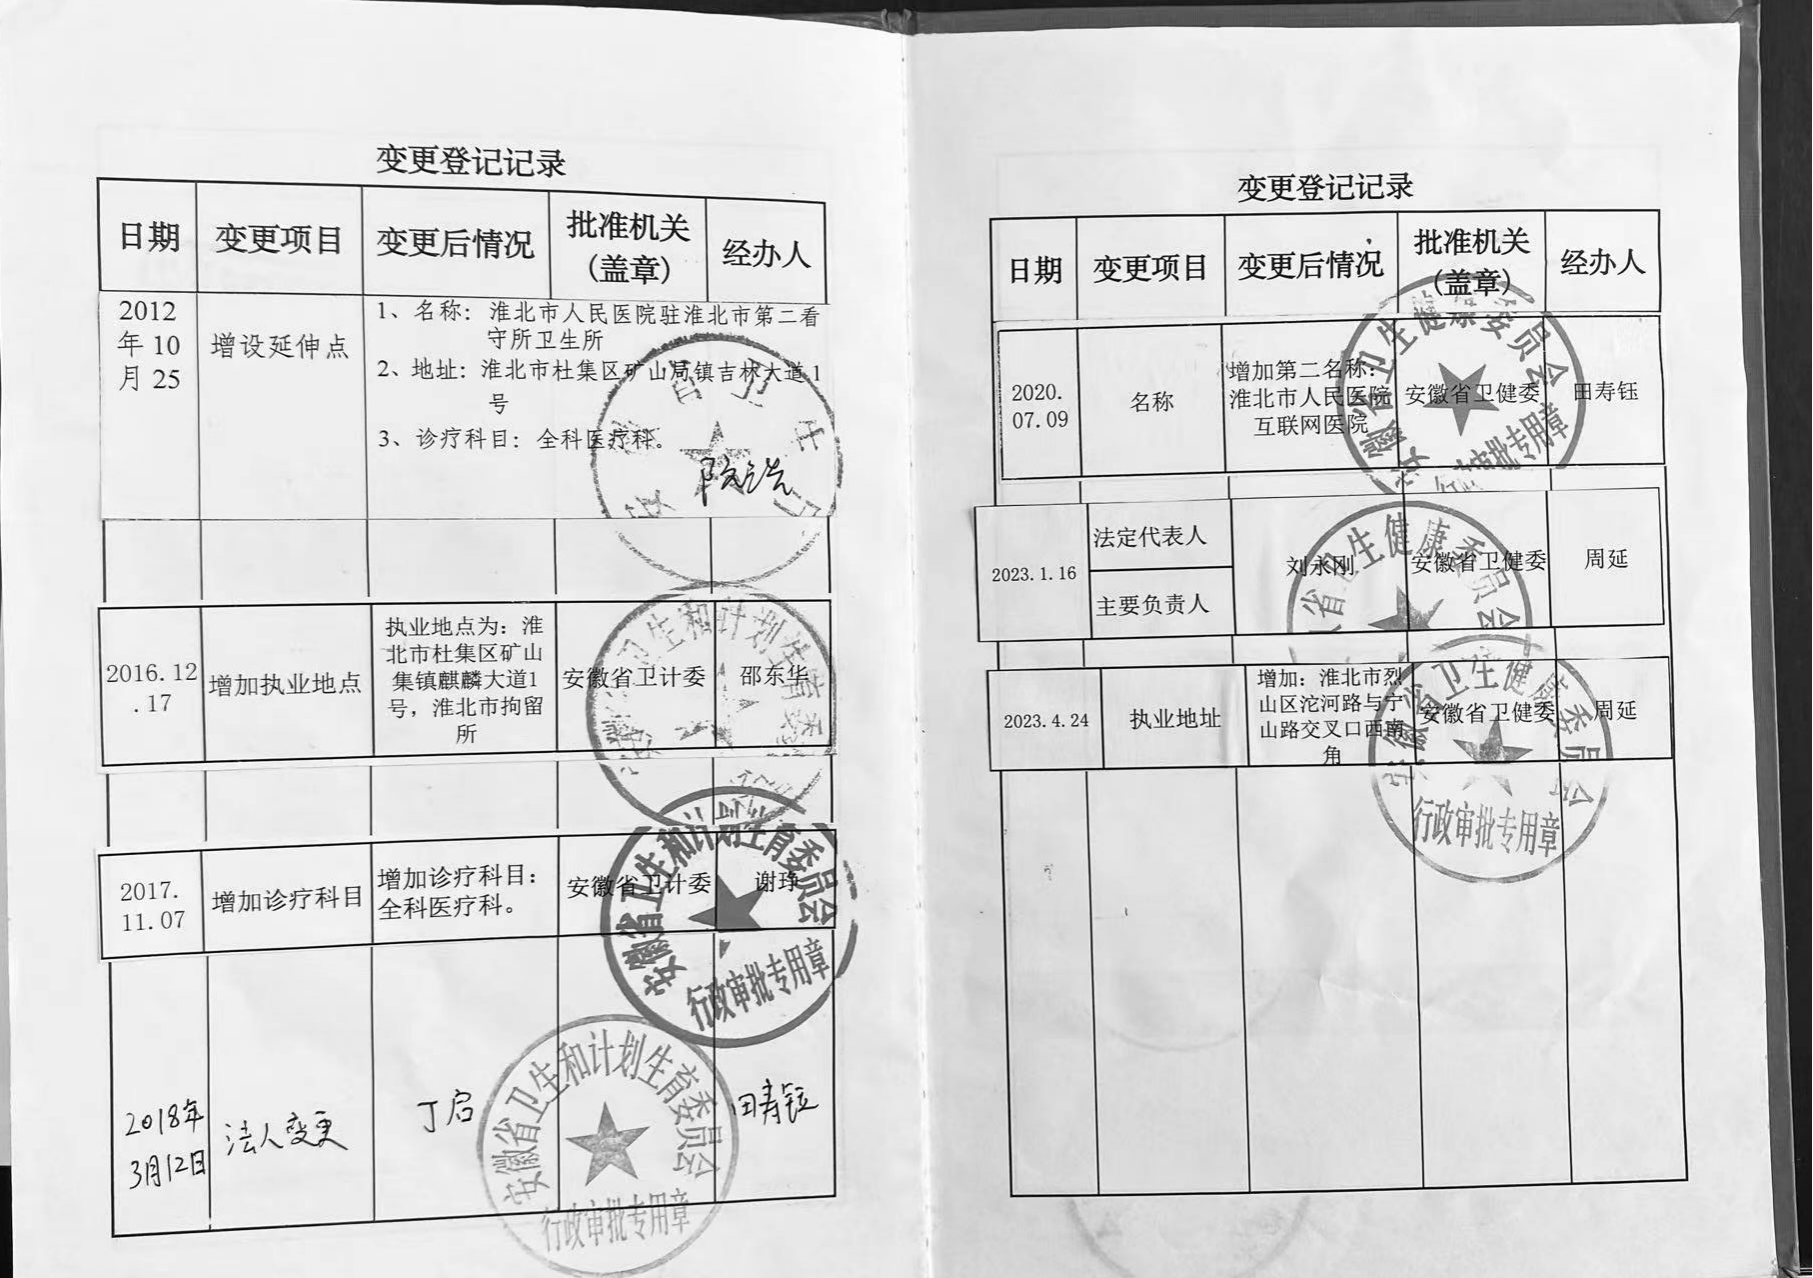 变更登记记录
日期
变更项目
变更后情况
批准机关
(盖章)
经办人
2012
年 10
月 25
增设延伸点
1、名称：淮北市人民医院驻淮北市第二看
守所卫生所
2、地址：淮北市杜集区矿山局镇吉林大道 1
号
3、诊疗科目：全科医疗科。
省卫生
2016.12
.17
增加执业地点
执业地点为：淮
北市杜集区矿山
集镇麒麟大道1
号，淮北市拘留
所
安徽省卫计委
邵东华
卫生和计划生育委
2017.
11.07
增加诊疗科目
增加诊疗科目：
全科医疗科。
安徽省卫计委
谢琤
安徽省卫生和计划生育委员会
行政审批专用章
2018年
3月12日
法人变更
丁启
田寿钰
安徽省卫生和计划生育委员会
行政审批专用章
变更登记记录
日期
变更项目
变更后情况
批准机关
(盖章)
经办人
2020.
07.09
名称
增加第二名称：
淮北市人民医院
互联网医院
安徽省卫健委
田寿钰
安徽省卫生健康委员会
行政审批专用章
2023.1.16
法定代表人
主要负责人
刘永刚
安徽省卫健委
周延
省卫生健康委员会
2023.4.24
执业地址
增加：淮北市烈
山区沱河路与宁
山路交叉口西南
角
安徽省卫健委
周延
安徽省卫生健康委员会
行政审批专用章